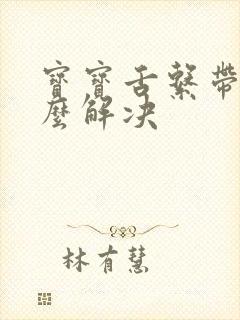 寶寶舌繫帶
麼解决
林有慧